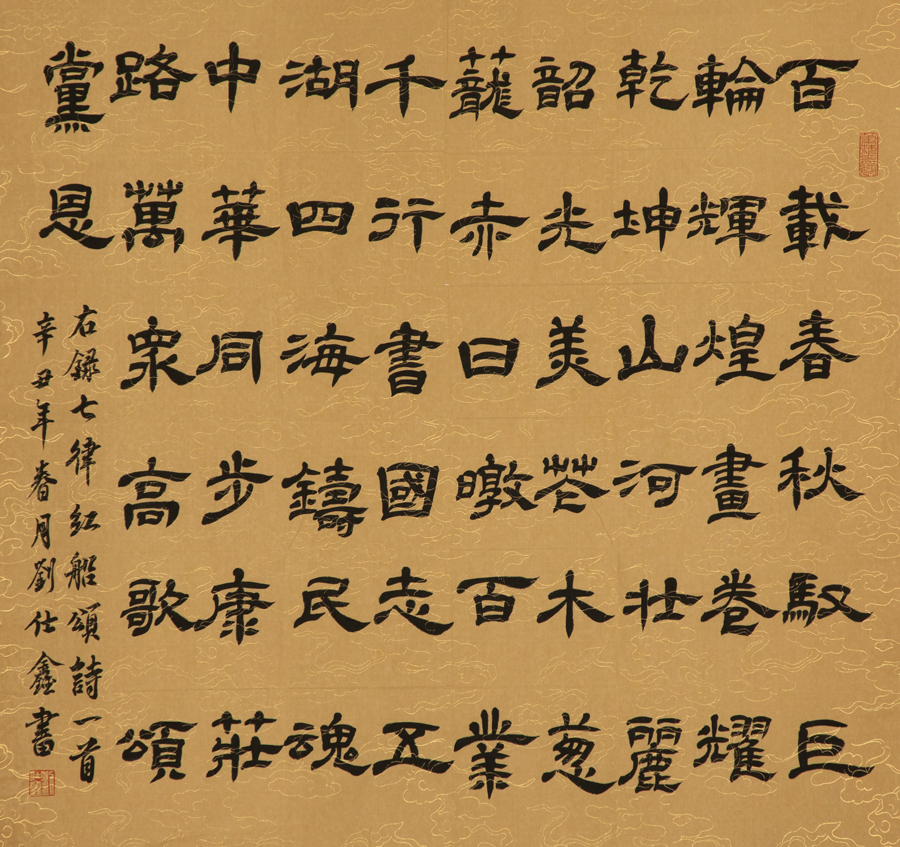 百載春秋馭巨
輪輝煌畫卷耀
乾坤山河壯麗
韶光美花木葱
蘢赤日暾百業
千行書國志五
湖四海鑄民魂
中華同步康莊
路萬衆高歌頌
黨恩
右錄七律紅船頌詩一首
辛丑年春月劉仕鑫書